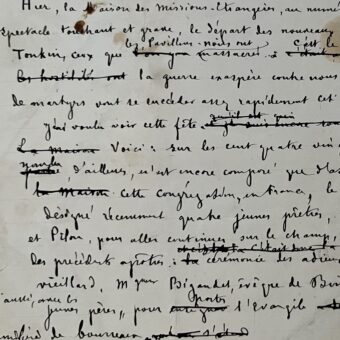 Hier, la Maison des Missions-Etrangères, au numé
spectacle touchant et grave, le départ des nouveaux
les Pavillons-noirs ont C'est le
Tonkin, ceux que massacrés était
les hostilités ont la guerre exaspère contre nous
de martyrs vont se succéder assez rapidement cet
J'ai voulu voir cette fête
La Maison Voici : sur les cent quatre vin
d'ailleurs, n'est encore composé que d'as
la Maison cette Congrégation, en France, le
désigné récemment quatre jeunes prêtres,
et Pilon, pour aller continuer sur le champ,
des précédents apôtres : la cérémonie des adieux
vieillard, Mgr Bigandet, évêque de Bir
aussi, avec les porter
jeunes pères, pour enseigner l'Evangile
de bourreaux